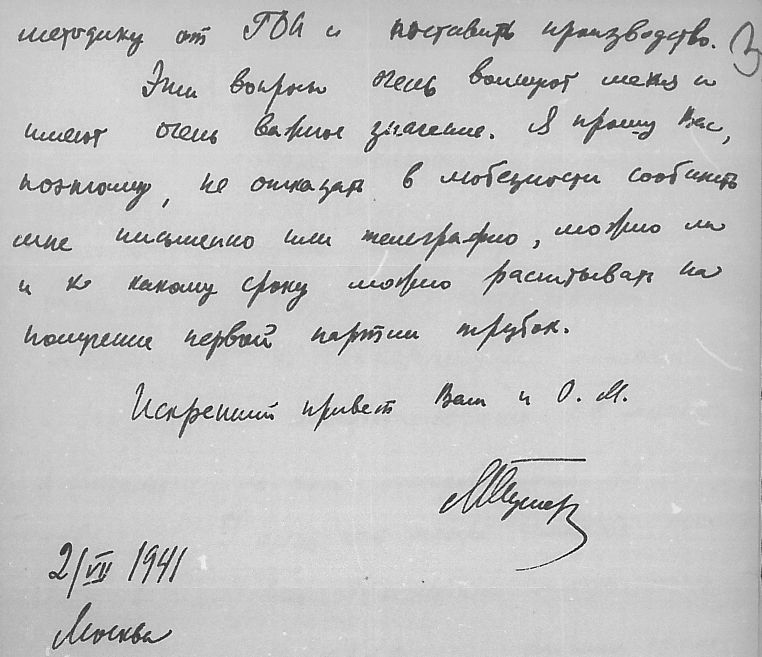 методику от ГОИ и поставить производство.
Эти вопросы очень волнуют меня и
имеют очень важное значение. Я прошу Вас,
поэтому, не отказать в любезности сообщить
мне письменно или телеграфно, можно ли
и к какому сроку можно рассчитывать на
получение первой партии трубок.
Искренний привет Вам и О. М.
2/VII 1941
Москва